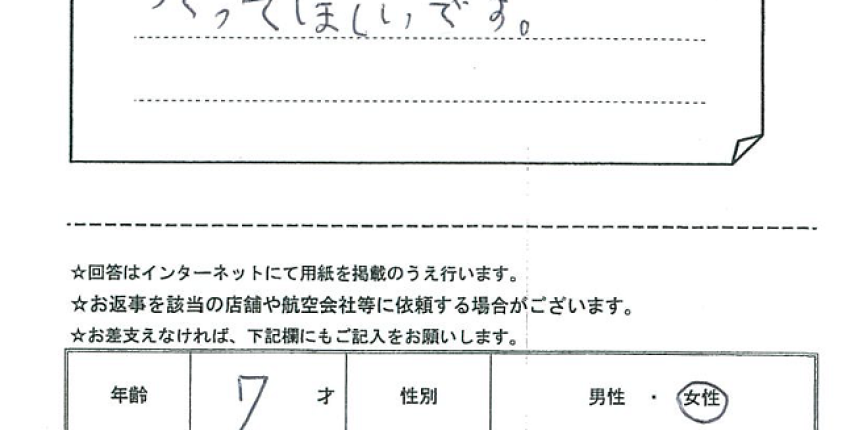 つくってほしいです。
☆回答はインターネットにて用紙を掲載のうえ行います。
☆お返事を該当の店舗や航空会社等に依頼する場合がございます。
☆お差支えなければ、下記欄にもご記入をお願いします。
年齢 7 才 性別 男性 ・ 女性